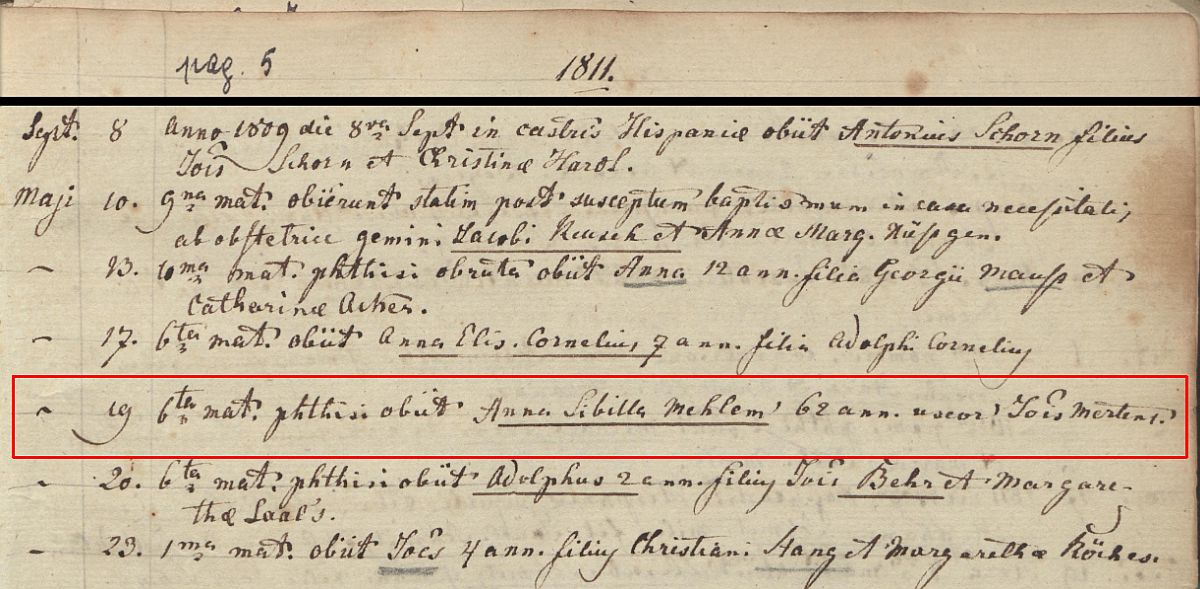 pag. 5 1811.
Sept. 8 Anno 1809 die 8va Sept. in castris Hispaniæ obiit Antonius Schorn filius
Jois Schorn et Christinæ Harol.
Maji 10. 9na mat. obiêrunt statim post susceptum baptismum in casu necessitatis
ab obstetrice gemini Jacobi Reusch et Annæ Marg. Nüssgen.
– 13. 10ma mat. phthisi obruta obiit Anna 12 ann. filia Georgii Mauss et
Catharinæ Acher.
– 17. 6ta mat. obiit Anna Elis. Cornelius 7 ann. filia Adolphi Cornelius
– 19 6ta mat. phthisi obiit Anna Sibilla Mehlem 62 ann. uxor Jois Mertens.
– 20. 6ta mat. phthisi obiit Adolphus 2 ann. filius Jois Behr et Margare-
thæ Laaf's.
– 23. 1ma mat. obiit Joês 4 ann. filius Christiani Hang et Margarethæ Röches.